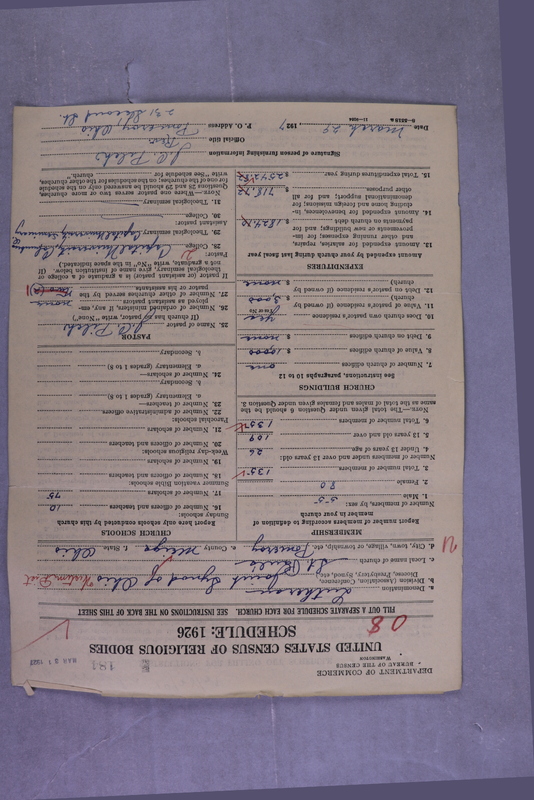 DEPARTMENT OF COMMERCE
BUREAU OF THE CENSUS
WASHINGTON
181
MAR 31 1927
UNITED STATES CENSUS OF RELIGIOUS BODIES
SCHEDULE: 1926
08
FILL OUT A SEPARATE SCHEDULE FOR EACH CHURCH. SEE INSTRUCTIONS ON THE BACK OF THIS SHEET
a. Denomination Lutheran
b. Division (Association, Conference, Diocese, Presbytery, Synod, etc.) Joint Synod of Ohio Western Dist
c. Local name of church St Paul's
d. City, town, village, or township, etc. Pomeroy e. County Meigs f. State Ohio
MEMBERSHIP
Report number of members according to definition of member in your church
Number of members, by sex:
1. Male 55
2. Female 80
3. Total number of members 135
Number of members under and over 13 years old:
4. Under 13 years of age 26
5. 13 years old and over 109
6. Total number of members 135
NOTE.—The total given under Question 6 should be the same as the total of males and females under Question 3.
CHURCH BUILDINGS
See instructions, paragraphs 10 to 12
7. Number of church edifices one
8. Value of church edifices $ 10,000
9. Debt on church edifices $ none
10. Does church own pastor's residence yes
(Yes or No)
11. Value of pastor's residence (if owned by church) $ 3,000
12. Debt on pastor's residence (if owned by church) $ none
EXPENDITURES
Amount expended by your church during last fiscal year
13. Amount expended for salaries, repairs, and other running expenses; for improvements or new buildings; and for payments on church debt $
14. Amount expended for benevolences, including home and foreign missions; for denominational support; and for all other purposes $
15. Total expenditure during year $
CHURCH SCHOOLS
Report here only schools conducted by this church
Sunday schools:
16. Number of officers and teachers 10
17. Number of scholars 75
Summer vacation Bible schools:
18. Number of officers and teachers
19. Number of scholars
Week-day religious schools:
20. Number of officers and teachers
21. Number of scholars
Parochial schools:
22. Number of administrative officers
23. Number of teachers—
a. Elementary (grades 1 to 8)
b. Secondary
24. Number of scholars—
a. Elementary (grades 1 to 8)
b. Secondary
PASTOR
25. Name of pastor
(If church has no pastor, write "None")
26. Number of ordained ministers, if any, employed as assistant pastors none
27. Number of other churches served by the pastor or his assistants
If pastor (or assistant pastor) is a graduate of a college or theological seminary, give name of institution below. (If not a graduate, write "No" in the space indicated)
Pastor:
28. College Capital University Columbus O
29. Theological seminary Capital University Seminary
Assistant pastor:
30. College
31. Theological seminary
NOTE.—Where one pastor serves two or more churches, Questions 28 and 29 should be answered only on the schedule for one of the churches; on the schedules for the other churches, write "See schedule for church."
Signature of person furnishing information
Official title Rev
Date March 29 1927 P. O. Address Pomeroy Ohio
231 Second St.